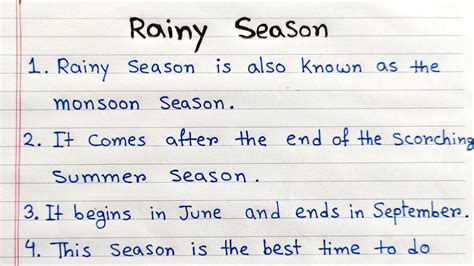 Rainy Season
1. Rainy Season is also known as the
monsoon Season.
2. It comes after the end of the Scorching
Summer Season.
3. It begins in June and ends in September.
4. This Season is the best time to do